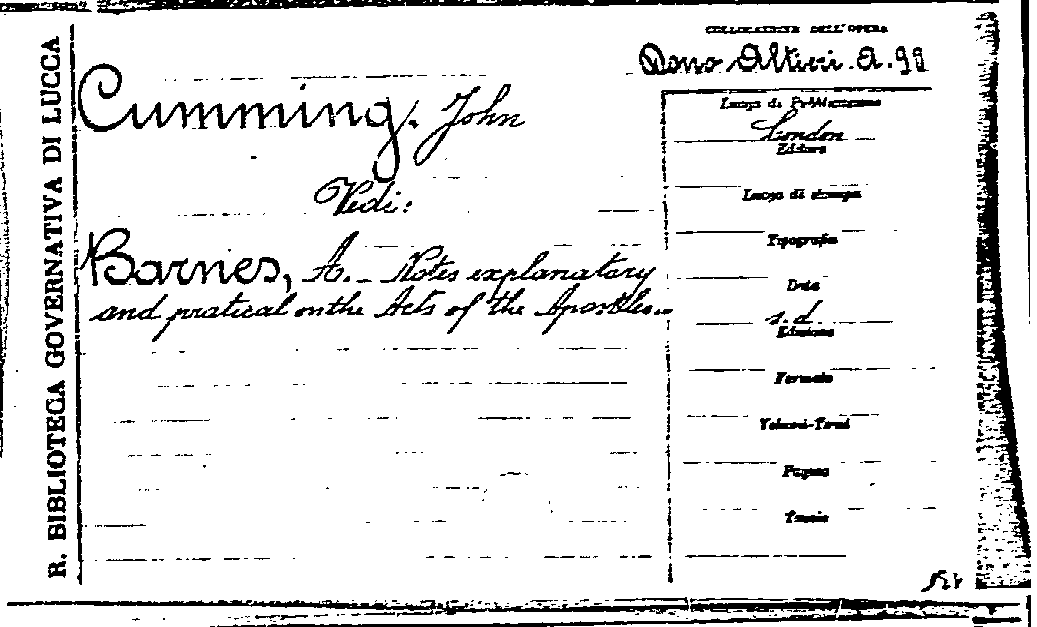 R. BIBLIOTECA GOVERNATIVA DI LUCCA
COLLOCAZIONE DELL'OPERA
Dono Altieri. A. 99
Cumming, John
Vedi:
Barnes, A. - Notes explanatory
and pratical on the Acts of the Apostles. -
Luogo di Pubblicazione
London
Editore
Luogo di stampa
Tipografia
Data
s. d.
Edizione
Formato
Volumi-Tomi
Pagine
Tavole